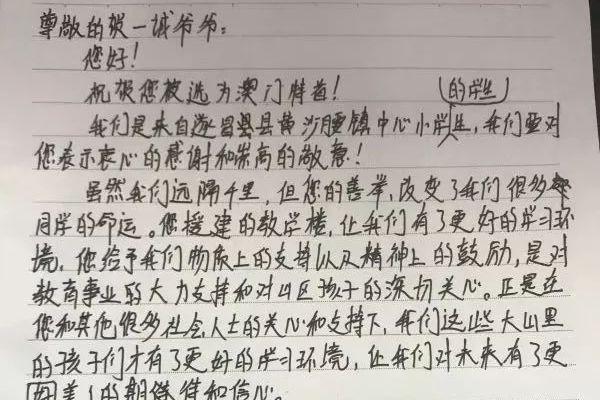 尊敬的贺一城爷爷:
您好!
祝贺您被选为澳门特首!
(的学生)
我们是来自遂昌县县黄沙腰镇中心小学生,我们要对
您表示衷心的感谢和崇高的敬意!
虽然我们远隔千里,但您的善举,改变了我们很多
同学的命运。您援建的教学楼,让我们有了更好的学习环
境,您给予我们物质上的支持以及精神上的鼓励,是对
教育事业的大力支持和对山区孩子的深切关心。正是在
您和其他很多社会人士的关心和支持下,我们这些大山里
的孩子们才有了更好的学习环境,让我们对未来有了更
好美的期待和信心。